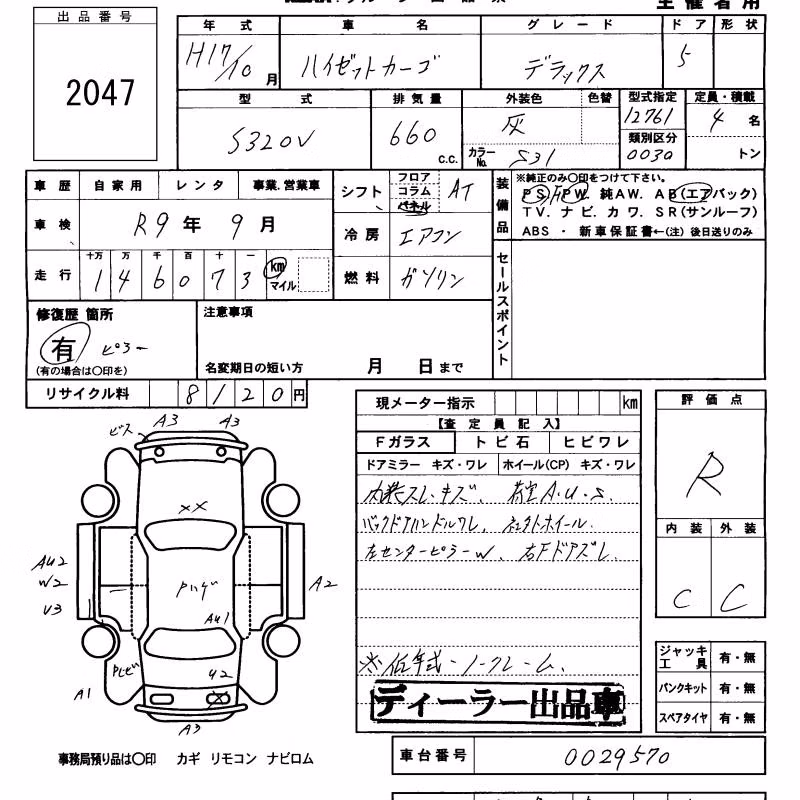 主催者用
出品番号
2047
年式 車名 グレード ドア 形状
H17/10月 ハイゼットカーゴ デラックス 5
型式 排気量 外装色 色替 型式指定 定員・積載
S320V 660 C.C. 灰 12761 4 名
類別区分
カラーNo. S31 0030 トン
車歴 自家用 レンタ 事業.営業車
シフト フロア コラム パネル AT
装備品
※純正のみ○印をつけて下さい。
PS. PW. 純AW. AB(エアバック)
TV. ナビ. カワ. SR(サンルーフ)
ABS ・ 新車保証書←(注) 後日送りのみ
車検 R9年 9月
冷房 エアコン
走行 十万 万 千 百 十 一
146073 km マイル
燃料 ガソリン
セールスポイント
修復歴 箇所
有 ピラー
(有の場合は○印を)
注意事項
名変期日の短い方 月 日まで
リサイクル料 8120円
現メーター指示 km
【査定員記入】
Fガラス トビ石 ヒビワレ
ドアミラー キズ・ワレ ホイール(CP) キズ・ワレ
内装スレ・キズ、荷室A.U.S.
バックドアハンドルワレ、
左センターピラーW、右Fドアズレ.
※低年式・ノークレーム.
ディーラー出品車
評価点
R
内装 外装
C C
ジャッキ工具 有・無
パンクキット 有・無
スペアタイヤ 有・無
車台番号 0029570
ビス A3 A3
XX
AU2
W2
U3
A2
AU1
U2
A1
X
A3
事務局預り品は○印 カギ リモコン ナビロム